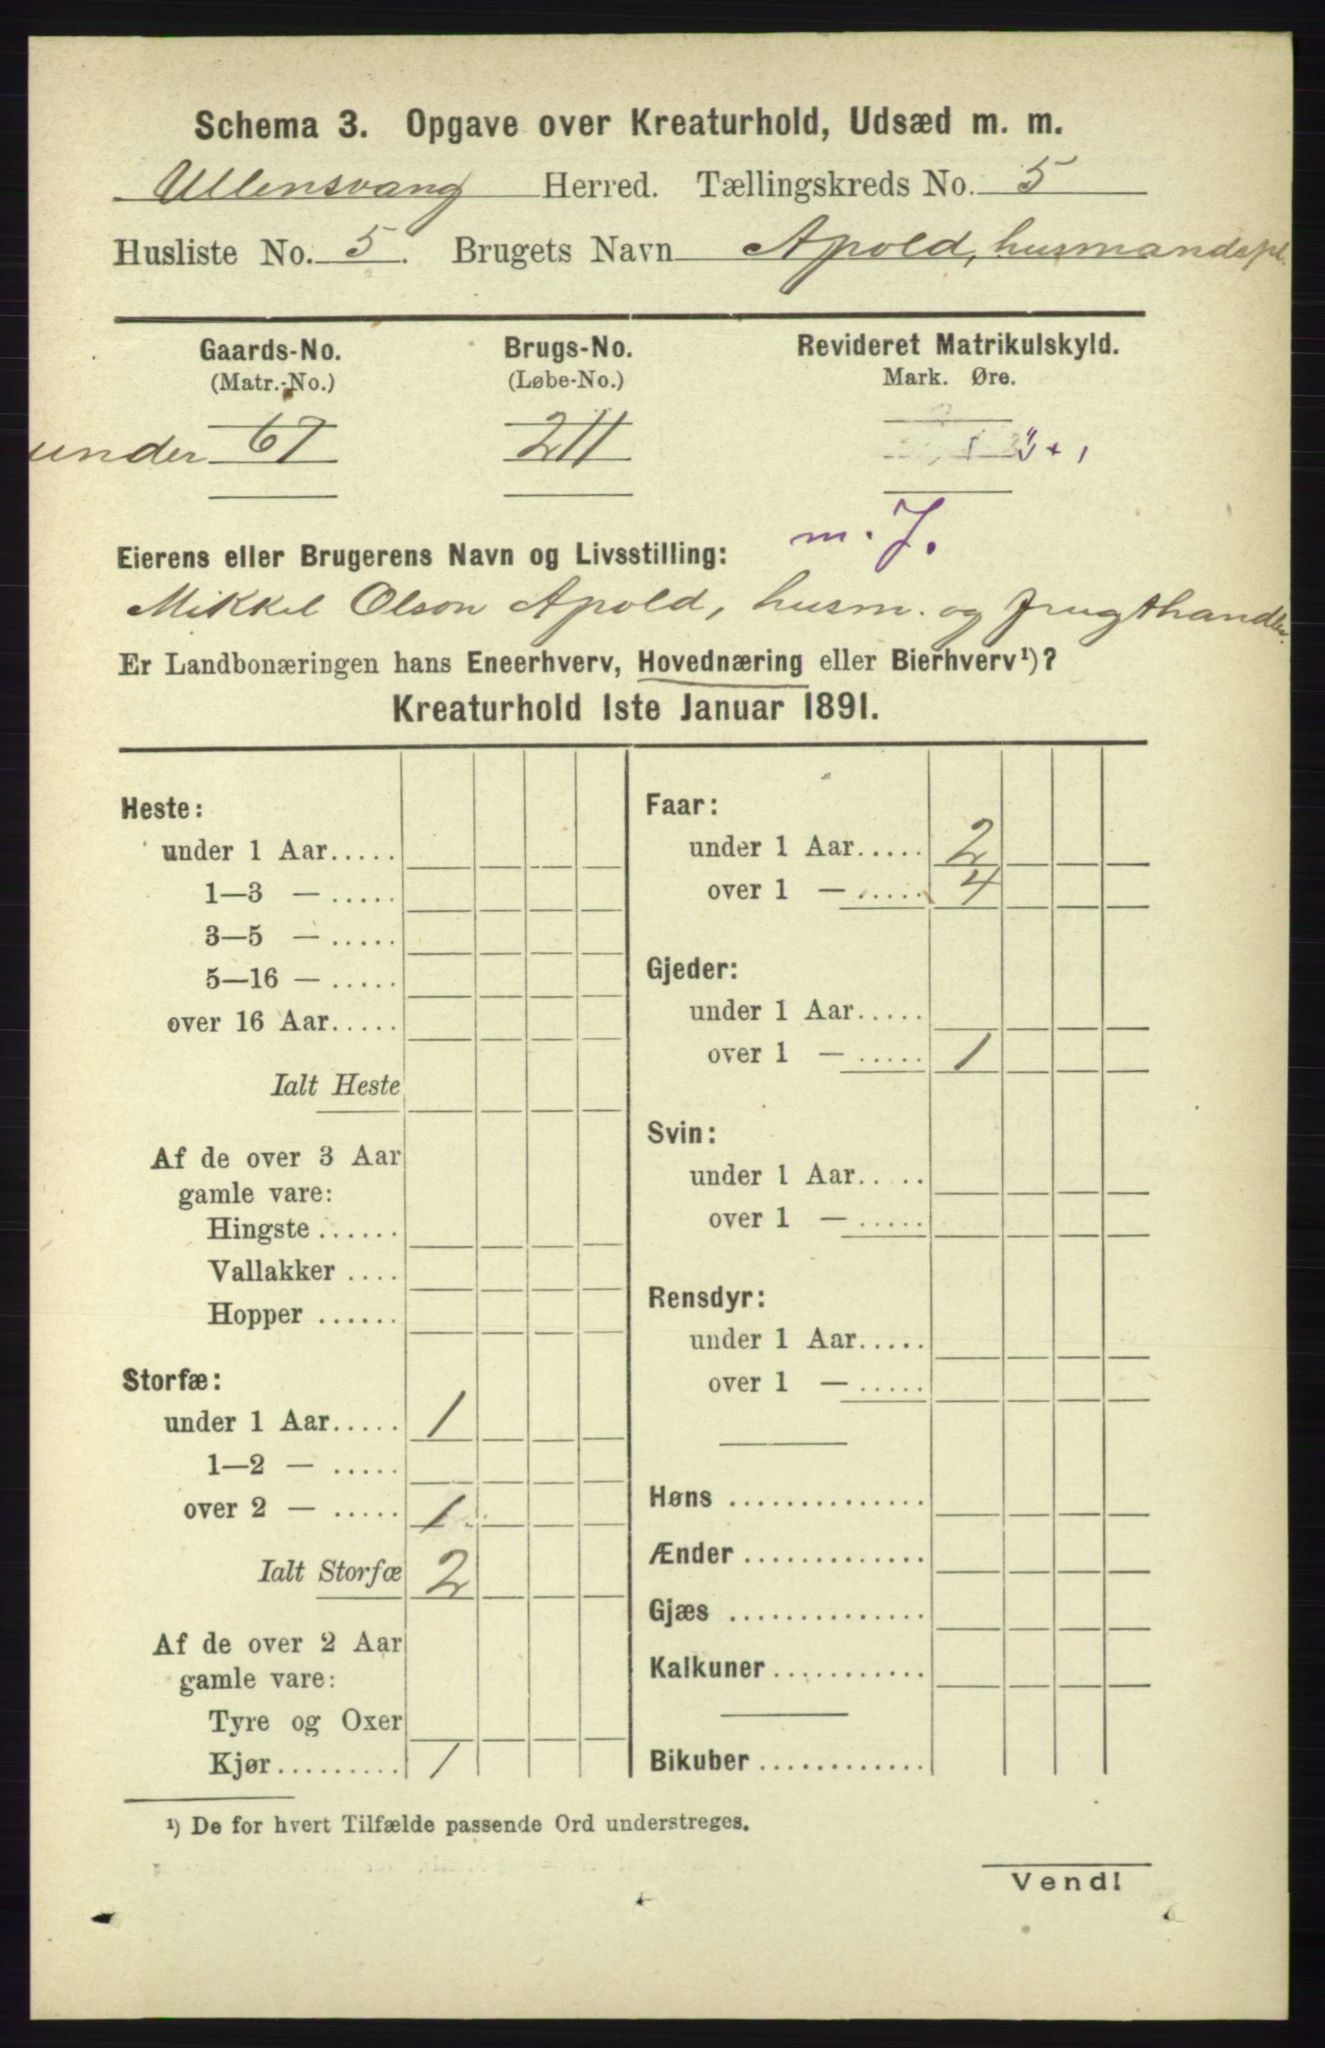 Schema 3. Opgave over Kreaturhold, Udsæd m. m.
Ullensvang Herred. Tællingskreds No. 5
Husliste No. 5. Brugets Navn Apold, husmandspl.
Gaards-No. Brugs-No. Revideret Matrikulskyld.
(Matr.-No.) (Løbe-No.) Mark. Øre.
under 67 211
m. J.
Eierens eller Brugerens Navn og Livsstilling:
Mikkel Olson Apold, husm. og Frugthandler
Er Landbonæringen hans Eneerhverv, Hovednæring eller Bierhverv¹)?
Kreaturhold 1ste Januar 1891.
Heste:
under 1 Aar.....
1—3 — .....
3—5 — .....
5—16 — .....
over 16 Aar.....
Ialt Heste
Af de over 3 Aar
gamle vare:
Hingste ......
Vallakker ....
Hopper ......
Storfæ:
under 1 Aar..... 1
1—2 — .....
over 2 — ..... 1
Ialt Storfæ 2
Af de over 2 Aar
gamle vare:
Tyre og Oxer
Kjør......... 1
Faar:
under 1 Aar..... 2
over 1 — ..... 4
Gjeder:
under 1 Aar.....
over 1 — ..... 1
Svin:
under 1 Aar.....
over 1 — .....
Rensdyr:
under 1 Aar.....
over 1 — .....
Høns ..............
Ænder .............
Gjæs ..............
Kalkuner...........
Bikuber ............
¹) De for hvert Tilfælde passende Ord understreges.
Vend!